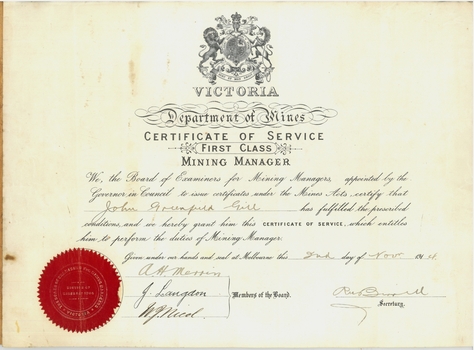 VICTORIA
Department of Mines
CERTIFICATE OF SERVICE
FIRST CLASS
MINING MANAGER
We, the Board of Examiners for Mining Managers, appointed by the
Governor in Council to issue certificates under the Mines Acts, certify that
John Greenfield Gill has fulfilled the prescribed
conditions, and we hereby grant him this CERTIFICATE OF SERVICE, which entitles
him to perform the duties of Mining Manager.
Given under our hands and seal at Melbourne this 2nd day of Nov. 19
A H Merrin
J. Langdon
W J Nicol
Members of the Board.
Secretary.